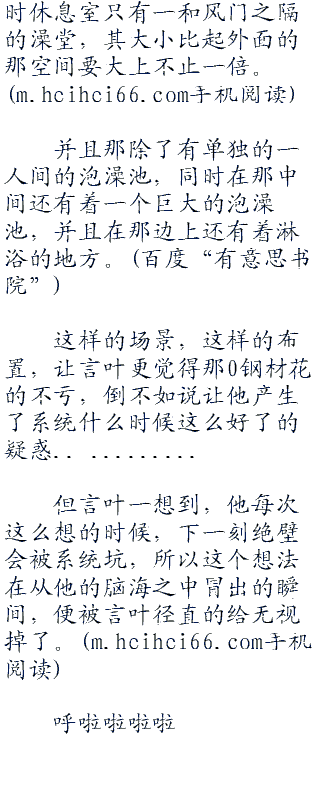 时休息室只有一和风门之隔
的澡堂，其大小比起外面的
那空间要大上不止一倍。
(m.hcihci66.com手机阅读)
并且那除了有单独的一
人间的泡澡池，同时在那中
间还有着一个巨大的泡澡
池，并且在那边上还有着淋
浴的地方。(百度“有意思书
院”)
这样的场景，这样的布
置，让言叶更觉得那0钢材花
的不亏，倒不如说让他产生
了系统什么时候这么好了的
疑惑.. .........
但言叶一想到，他每次
这么想的时候，下一刻绝壁
会被系统坑，所以这个想法
在从他的脑海之中冒出的瞬
间，便被言叶径直的给无视
掉了。(m.hcihci66.com手机
阅读)
呼啦啦啦啦